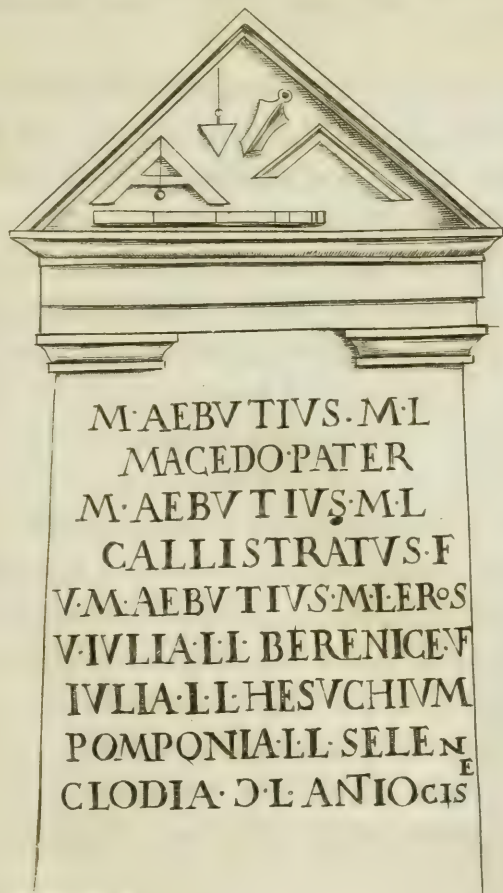 M·AEBVTIVS·M·L
MACEDO·PATER
M·AEBVTIVS·M·L
CALLISTRATVS·F
V·M·AEBVTIVS·M·L·EROS
V·IVLIA·L·L·BERENICE·V·F
IVLIA·L·L·HESVCHIVM
POMPONIA·L·L·SELENE
CLODIA·Ɔ·L·ANTIOCIS